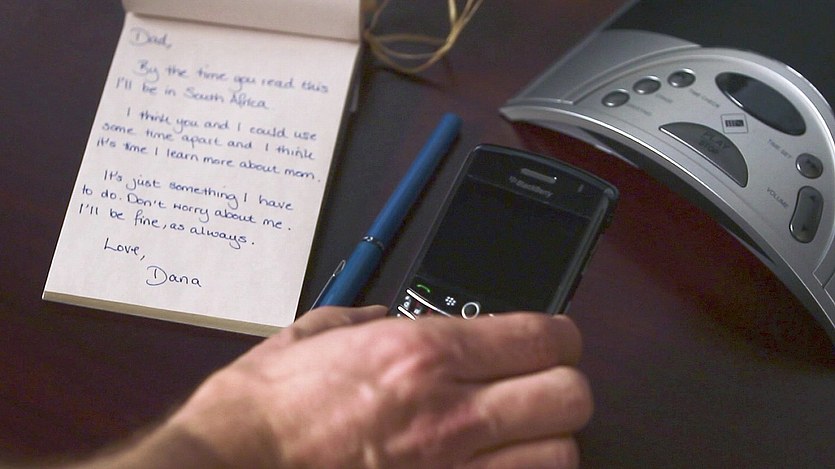 Dad,
By the time you read this
I'll be in South Africa.
I think you and I could use
some time apart and I think
it's time I learn more about mom.
It's just something I have
to do. Don't worry about me.
I'll be fine, as always.
Love,
Dana
BlackBerry
PLAY
VOLUME